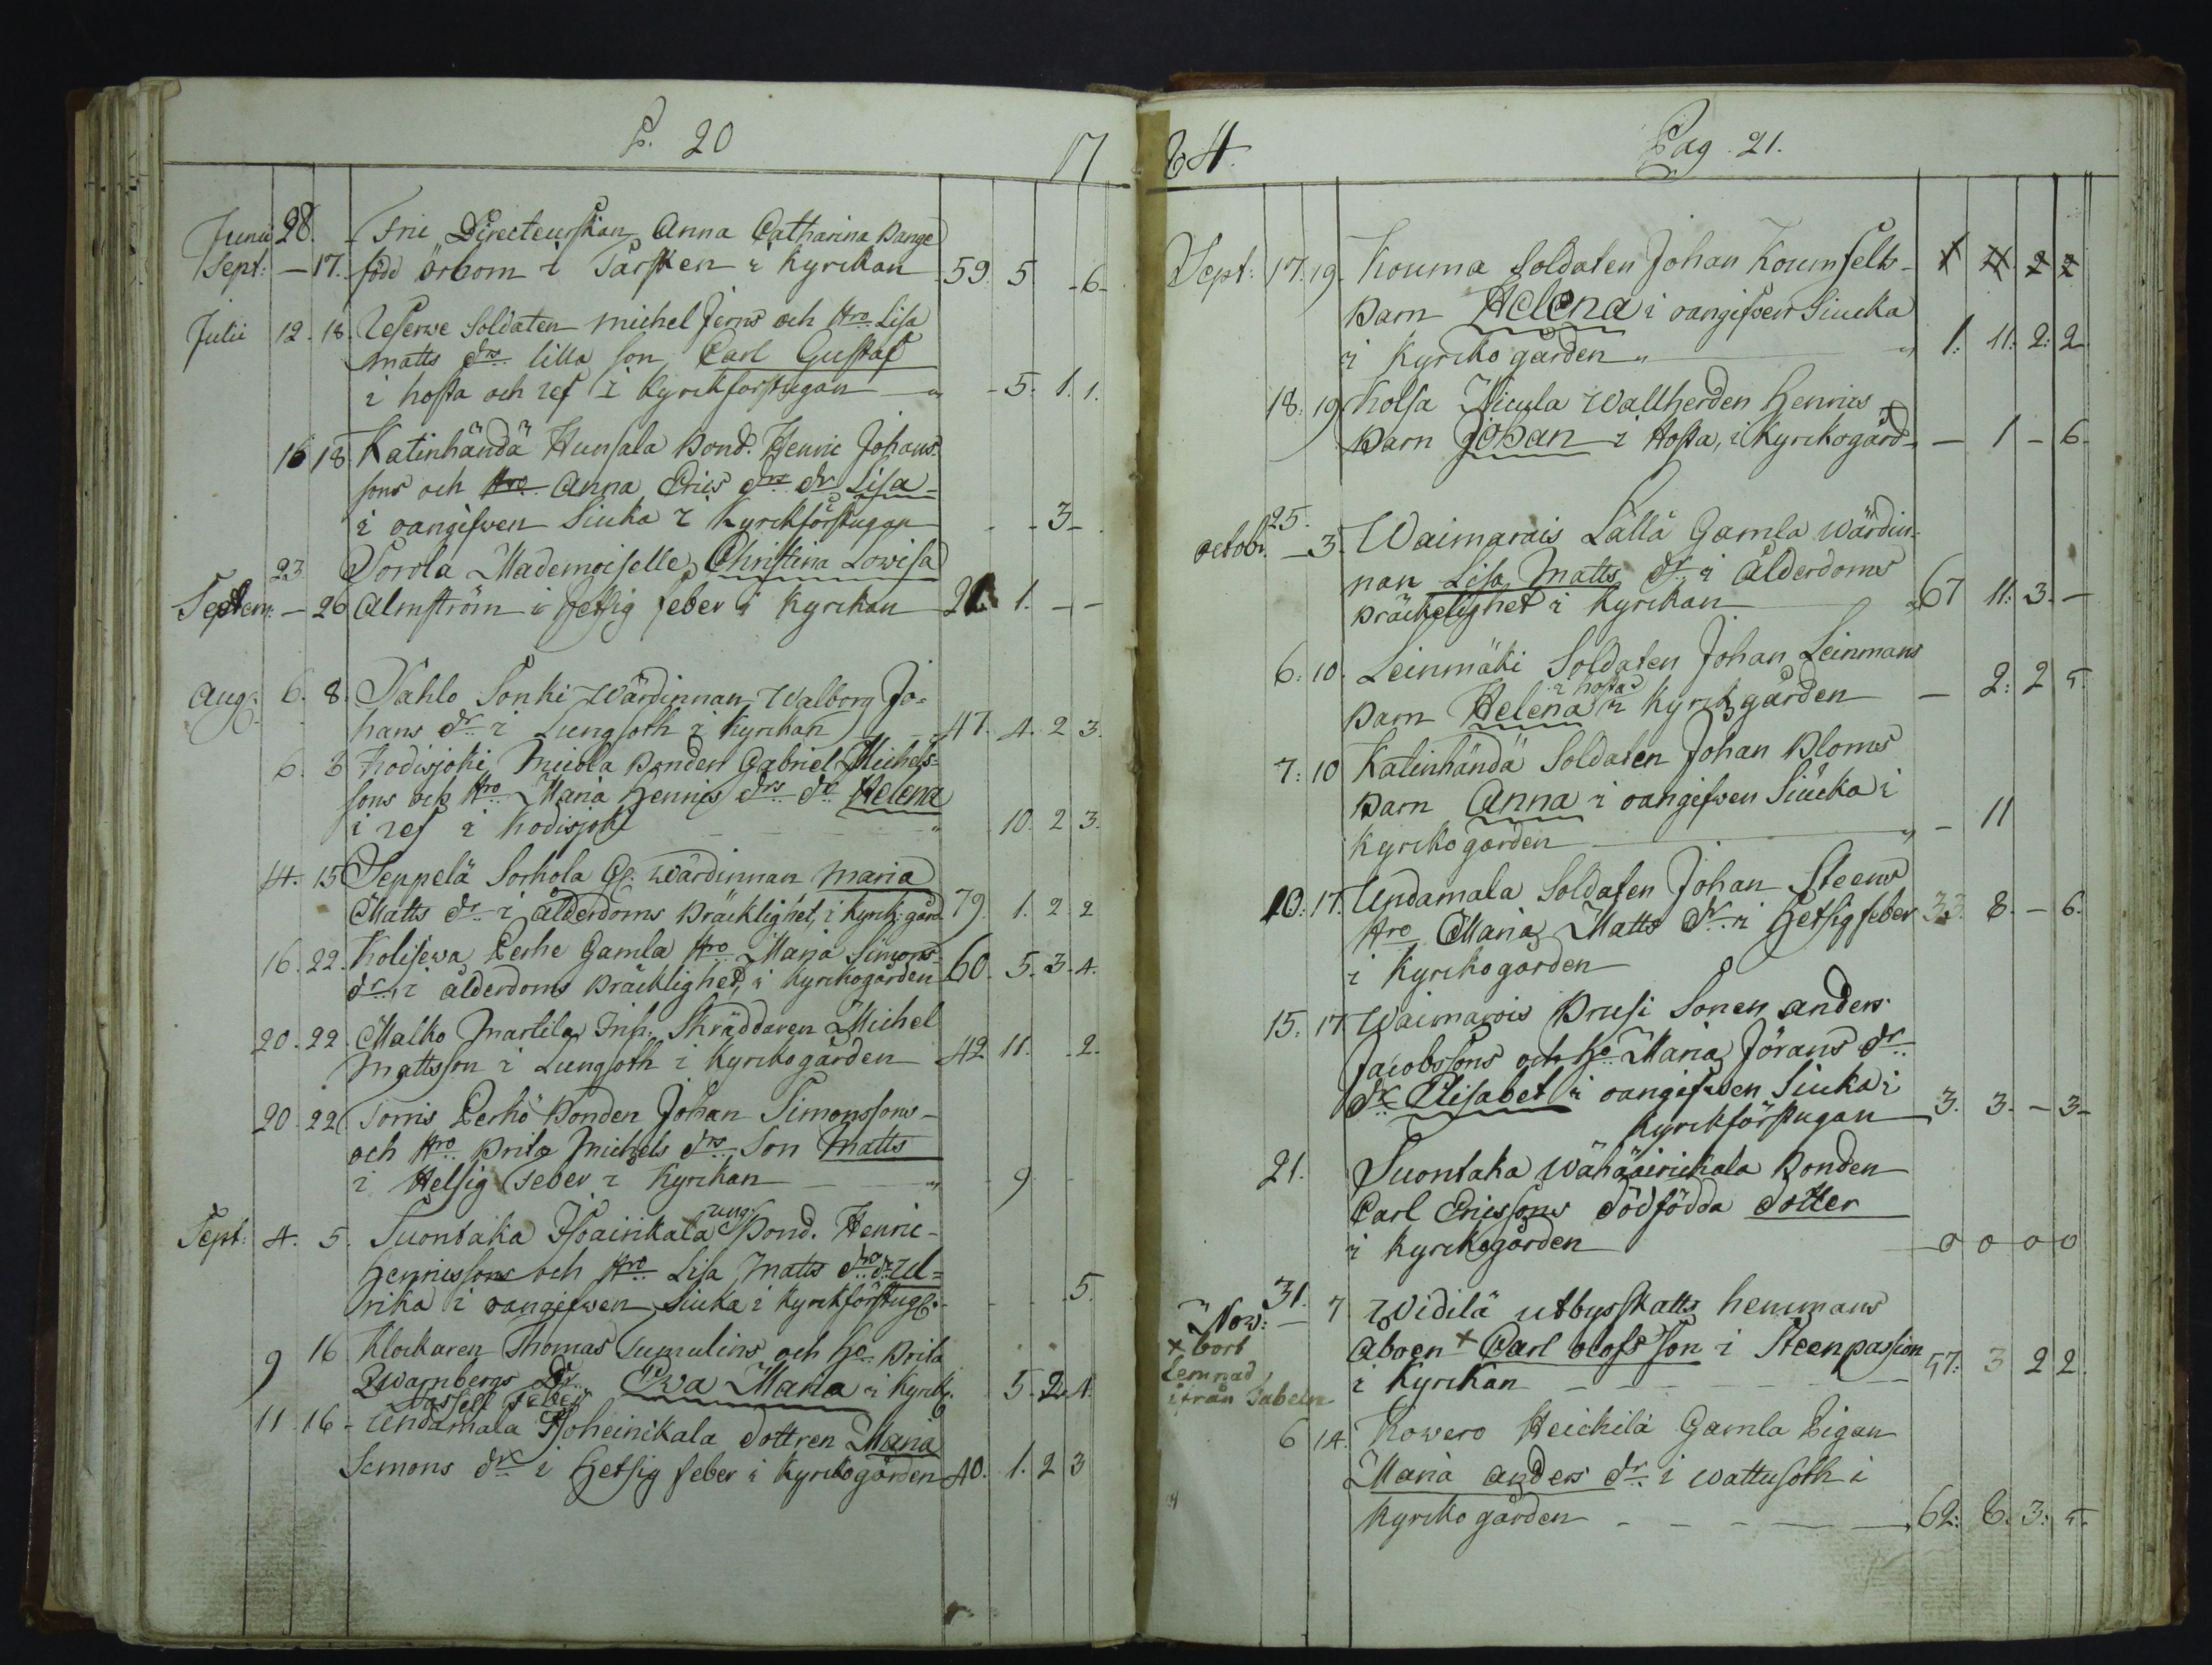 P. 20
17
Junii 28. Frie Directeurskan Anna Catharina Bange
Sept: — 17. född örbom i Tårsken i Kyrckan 59. 5 - 6 -
Julii 12. 18. Reserve Soldaten Michel Jerns och Hro Lisa
Matts drs lilla son Carl Gustaf
i hosta och ref i Kyrckforstugan - 5. 1. 1.
16 18. Katinhändä Hunsala Bond. Henric Johans
sons och Hro Anna Erics drs dr Lisa
i oangifwen Siuka i Kyrckförstugan - - 3 -
23 Sorola Mademoiselle Christina Lowisa
Septem: — 26 Almström i Hettig feber i Kyrckan 21. 1. - -
Aug: 6. 8. Sahlo Sonki Wärdinnan Walborg Jo=
hans dr i Lungsoth i Kyrckan 47. 4. 2 3.
6. 8 Kodisjoki Micola Bonden Gabriel Michels=
sons och Hro Maria Henrics drs dr Helena
i ref i Kodisjoki - 10. 2 3.
14. 15 Seppelä Sorhola Gl. wärdinnan Maria
Matts dr i ålderdoms Bräcklighet, i Kyrck: gård. 79. 1. 2. 2
16. 22. Kolisewa Perhe Gamla Hro Maria Simons
dr i ålderdoms Bräcklighet, i Kyrckogården 60. 5. 3. 4.
20. 22. Malko Martila Inh: Skräddaren Michel
Mattsson i Lungsoth i Kyrckogården 42 11. - 2.
20. 22 Torris Perhö Bonden Johan Simonssons
och Hro Brita Michels drs Son Matts
i Hetsig feber i Kyrckan - 9 -
Sept: 4. 5. Suontaka Isoairikala ung: Bond. Henric
Henricssons och Hro Lisa Matts drs dr Ul=
rika i oangifwen Siuka i Kyrckförstug: - - - 5.
9 16 Klockaren Thomas Tumulins och Ho Brita
Qwarnbergs Dr Ewa Maria i Kyrck. 5. 2. 4.
feber
11. 16 - Undamala Isoheinikala dottren Maria
Simons dr i Hetsig feber i Kyrckogården 40. 1. 2 3
64.
Pag. 21.
Sept: 17. 19. Kouma Soldaten Johan Koumfelts 1 11. 2 2
Barn Helena i oangifwen Siucka
i Kyrckogården " 1: 11: 2: 2
18: 19 Kolsa Nicula Wallherden Henrics
Barn Johan i Hosta, i Kyrckogård - — 1 - 6.
25.
Octobr. — 3. Waimarais Lällä Gamla Wärdin
nan Lisa Matts dr i Ålderdoms
Bräckelighet i Kyrckan 67 11: 3. -
6: 10. Leinmäki Soldaten Johan Leinmans
i hosta
Barn Helena i Kyrckgården — 2: 2 5.
7: 10 Katinhändä Soldaten Johan Bloms
Barn Anna i oangifwen Siucka i
Kyrckogården - 11
10: 17. Undamala Soldaten Johan Steens
Hro Maria Matts dr i Hetsig feber 33. 8. - 6.
i Kyrckogården
15: 17 Waimarois Brusi Sonen Anders
Jacobssons och Ho Maria Jörans dr
dr Elisabet i oangifwen Siuka i
Kyrckförstugan 3. 3. - 3 -
21. Suontaka Wähääirickala Bonden
Carl Ericssons dödfödda dotter
i Kyrckogården 0 0 0 0
31.
Now: — 7 Widilä utbysskatts hemmans
× bort
lemnad
ifrån Tabeln
åboen × Carl Olofs Son i Steenpassion 57: 3 2 2
i Kyrckan
6 14. Kowero Heickilä Gamla Pigan
Maria Anders dr i wattusoth i
Kyrckogården 62: 8. 3: 5.